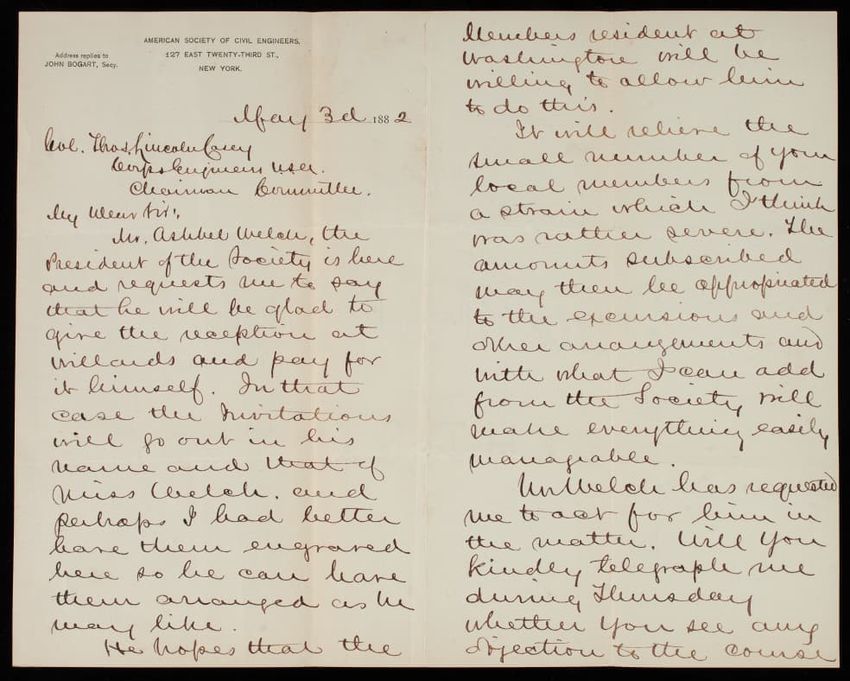 AMERICAN SOCIETY OF CIVIL ENGINEERS,
127 EAST TWENTY-THIRD ST.,
NEW YORK.
Address replies to
JOHN BOGART, Secy.
May 3d 1882
Col. Thos. Lincoln Casey
Corps Engineers USA.
Chairman Committee.
My Dear Sir:
Mr. Ashbel Welch, the
President of the Society is here
and requests me to say
that he will be glad to
give the reception at
Willards and pay for
it himself. In that
case the Invitations
will go out in his
name and that of
Miss Welch. and
perhaps I had better
have them engraved
here so he can have
them arranged as he
may like.
He hopes that the
Members resident at
Washington will be
willing to allow him
to do this.
It will relieve the
small number of your
local members from
a strain which I think
was rather severe. The
amounts subscribed
may then be appropriated
to the excursions and
other arrangements and
with what I can add
from the Society will
make everything easily
manageable.
Mr Welch has requested
me to act for him in
the matter. Will you
kindly telegraph me
during Thursday
whether you see any
objection to the course